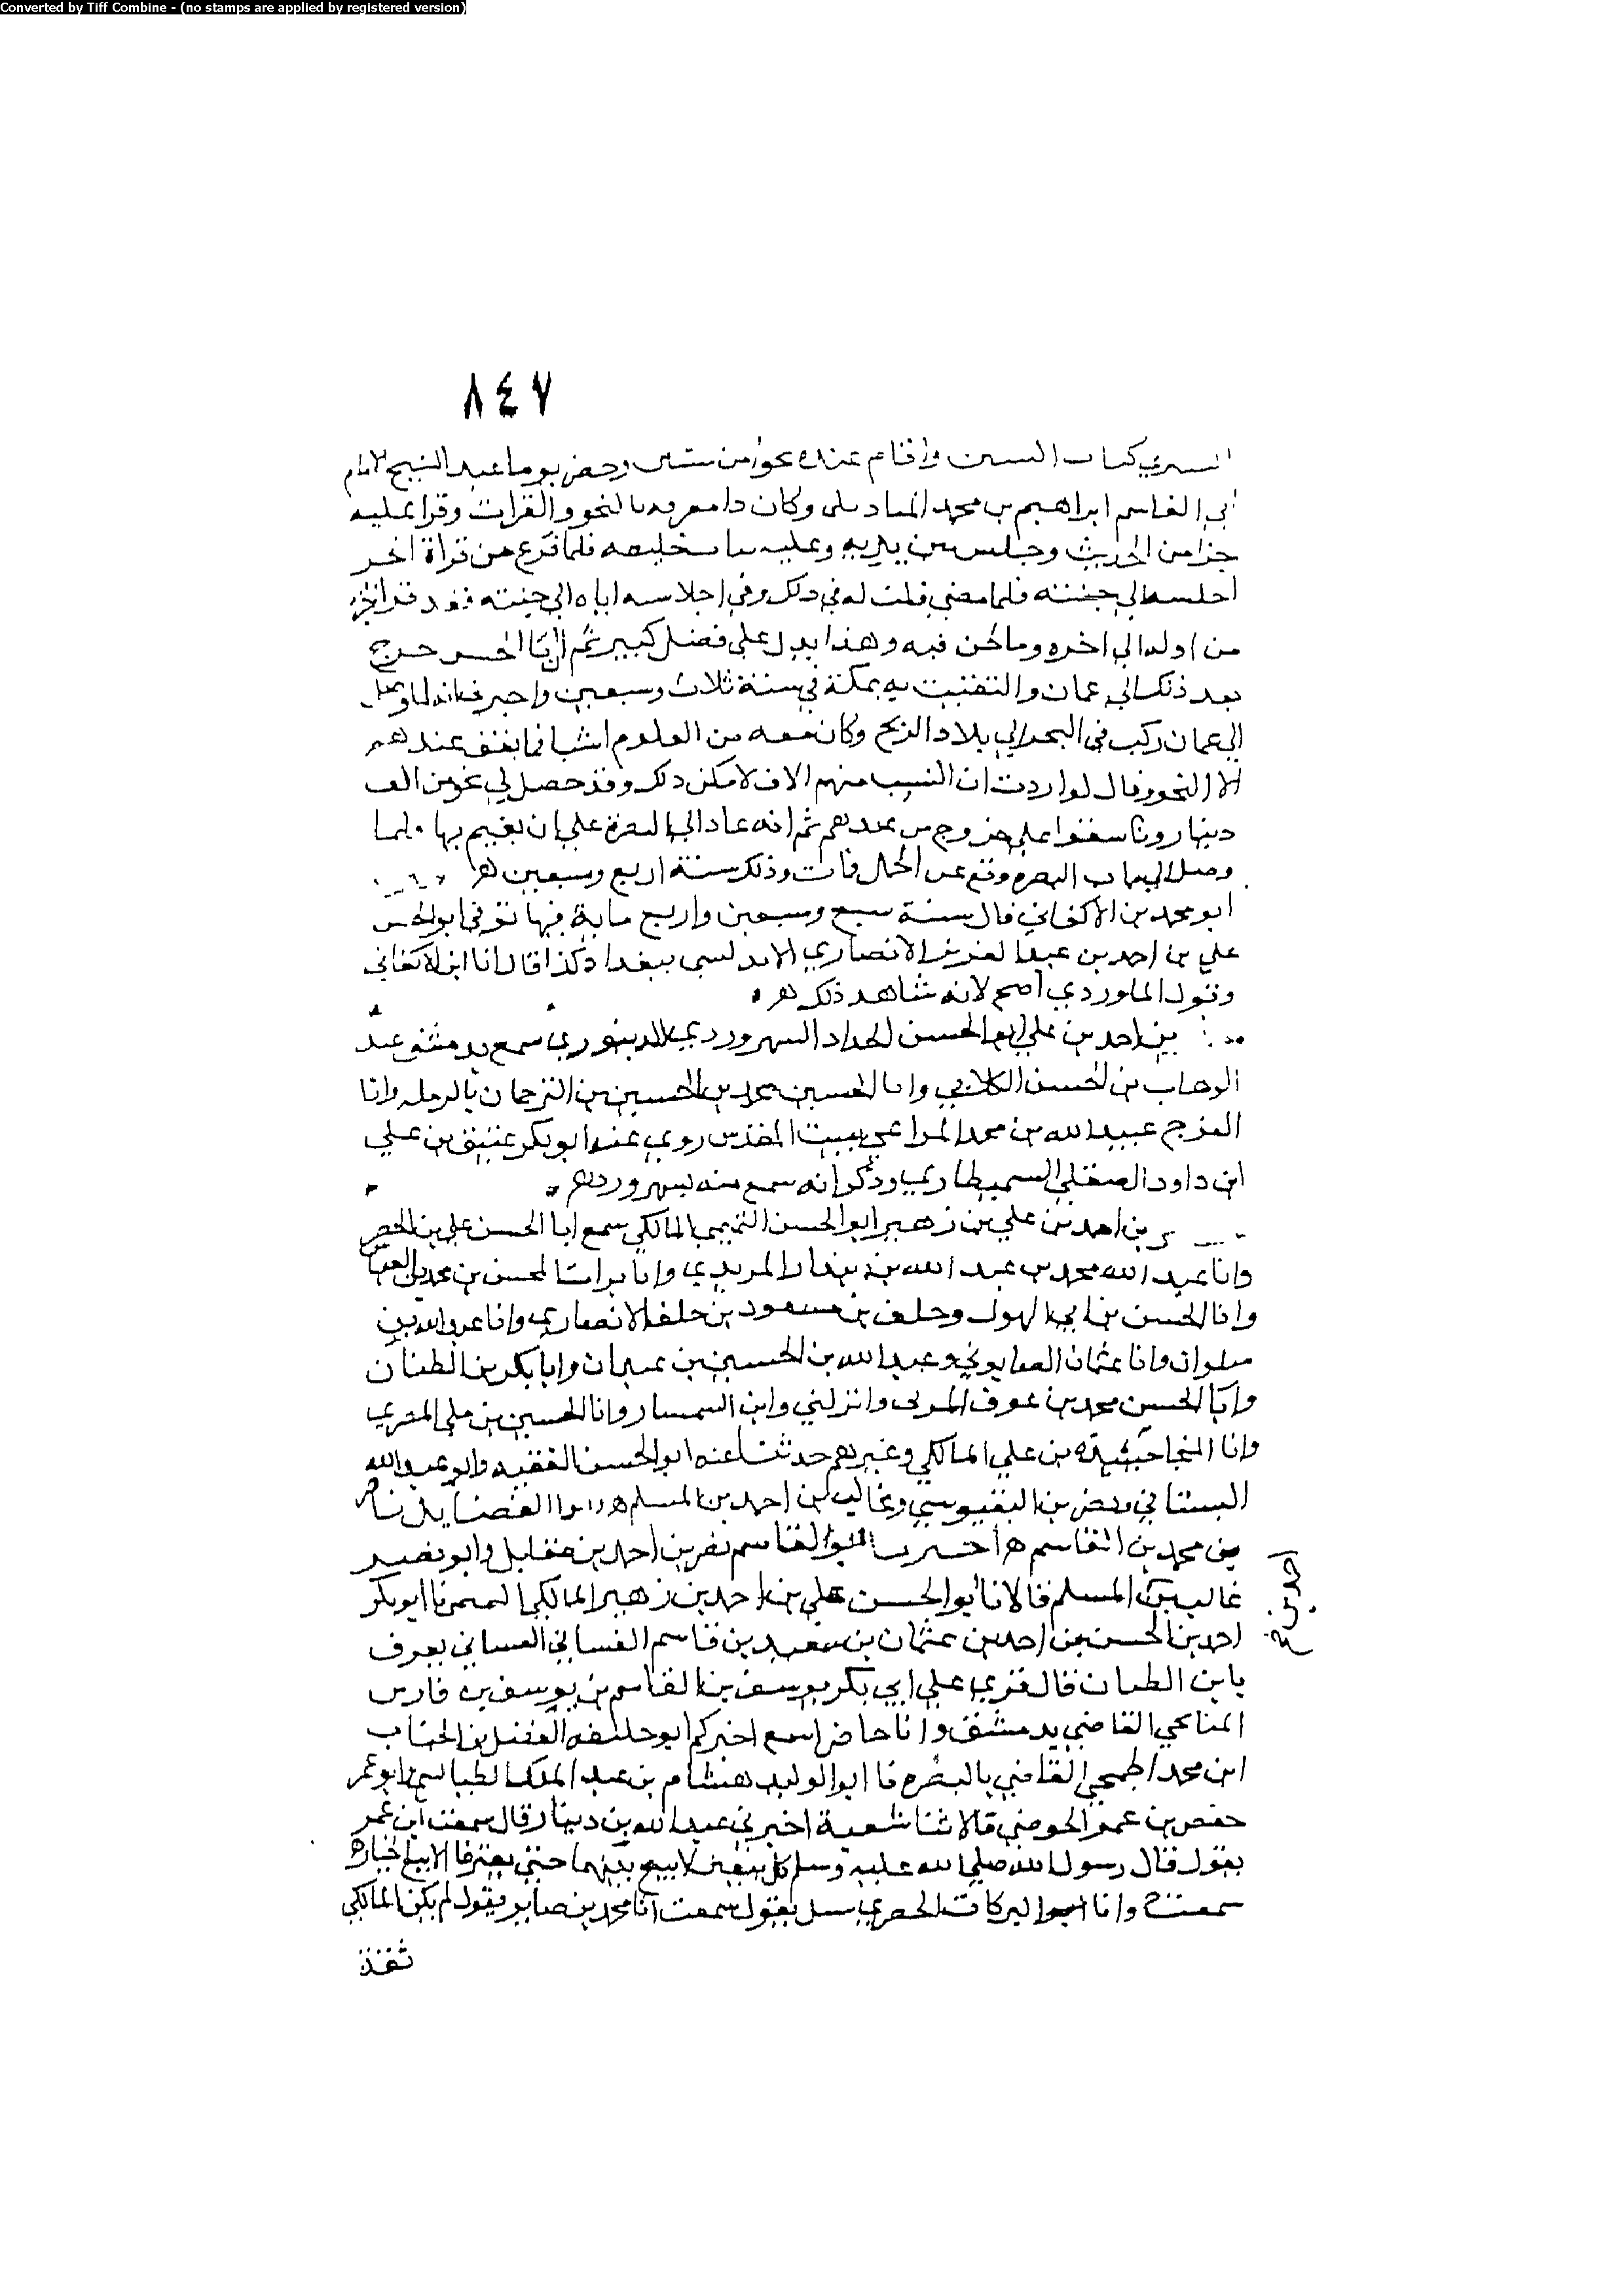 Converted by Tiff Combine - (no stamps are applied by registered version)
٨٤٧
كتاب السنن واقام عنده نحوا من سنتين وحضر يوما عند الشيخ الامام
ابي القاسم ابراهيم بن محمد وكان ذا معرفه بالنحو والقرات وقرا عليه
جزا من الحديث وجلس بين يديه وعليه فلما فرغ من قراة اخر
اجلسه الى جنبه فلما مضى قلت له في ذلك وفي اجلاسه اياه الى جنبه فقد قرا
من اوله الى اخره وما لحن فيه وهذا يدل على فضل كبير ثم ان ابا الحسن خرج
بعد ذلك الى عمان والتقيت به بمكة في سنة ثلاث وسبعين واخبر انه لما وصل
الى عمان ركب في البحر الى بلاد الزنج وكان معه من العلوم اشيا فما نفق عندهم
الا النحو وقال لو اردت ان اكسب منهم الاف لامكن ذلك وقد حصل لي نحو من الف
دينار وتاسفوا على خروجي من عندهم ثم انه عاد الى البصرة على ان يقيم بها فلما
وصل الى باب البصره وقع عن الجمال فات وذلك سنة اربع وسبعين
ابو محمد بن الاكفاني قال سنة سبع وسبعين واربع ماية فيها توفي ابو الحسن
علي بن احمد بن عبد العزيز الانصاري الاندلسي ببغداد كذا قال انا ابن الاكفاني
وقول الماوردي اصح لانه شاهد ذلك هـ
بن احمد بن علي ابو الحسن الحداد السهروردي الدينوري سمع بدمشق عبد
الوهاب بن الحسن الكلابي وابا الحسين محمد بن الحسين بن الترجمان بالرمله وابا
الفرج عبيد الله بن محمد المراغي ببيت المقدس روى عنه ابو بكر عتيق بن علي
ابن داود الصقلي السمنطاري وذكر انه سمع منه بسهرورد هـ
بن احمد بن علي بن زهير ابو الحسن التميمي المالكي سمع ابا الحسن علي بن الخضر
وابا عبد الله محمد بن عبد الله بن بندار المرندي وابا
وابا الحسن بن ابي الهول وخلف بن مسعود بن خلف الانصاري وابا عبد الله بن
سلوان وابا عثمان الصابوني وعبد الله بن الحسين بن عبدان وابا بكر بن الطيان
وابا الحسن محمد بن عوف المزني وابن السمسار وابا الحسين بن علي المصري
وابا المنجا بن علي المالكي وغيرهم حدثنا عنه ابو الحسن الفقيه وابو عبد الله
وغالب بن احمد بن المسلم وابو الفضايل ناصر
بن محمد بن القاسم هـ اخبرنا ابو القاسم نصر بن احمد بن مقاتل وابو نصر
غالب بن المسلم قالا انا ابو الحسن علي بن احمد بن زهير المالكي نا ابو بكر
احمد بن
احمد بن الحسن بن احمد بن عثمان بن سعيد بن قاسم الغساني يعرف
بابن الطيان قال قرى على ابي بكر يوسف بن القاسم بن يوسف بن فارس
الميانجي القاضي بدمشق وانا حاضر اسمع اخبركم ابو خليفه الفضل بن الحباب
ابن محمد الجمحي القاضي بالبصره نا ابو الوليد هشام بن عبد الملك الطيالسي وابو عمر
حفص بن عمر الحوضي قالا ثنا شعبة اخبرني عبد الله بن دينار قال سمعت ابن عمر
يقول قال رسول الله صلى الله عليه وسلم كل بيعين لا بيع بينهما حتى يفترقا الا بيع الخيار هـ
سمعت ابا البركات الخضري يقول سمعت ابا محمد بن صابر يقول لم يكن المالكي
ثقة